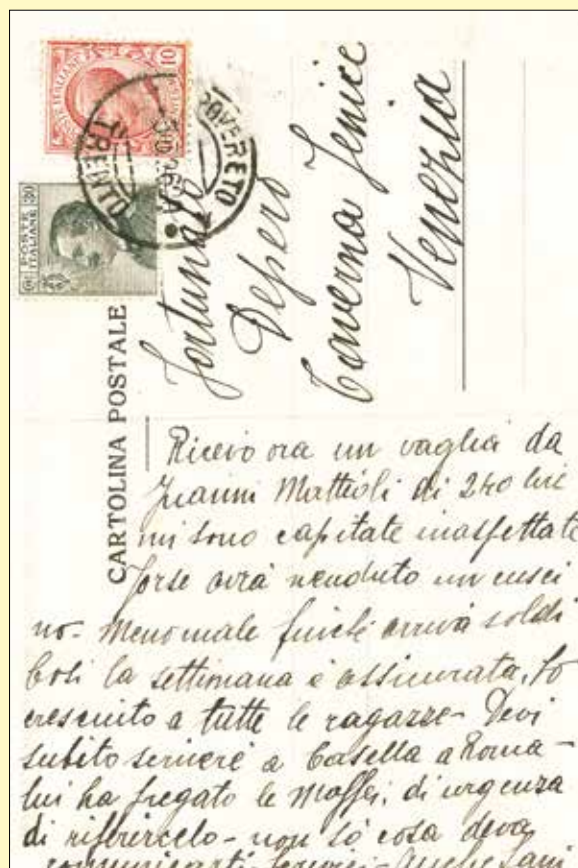 POSTE ITALIANE
10
ROVERETO
TRENTO
POSTE ITALIANE
30
CARTOLINA POSTALE
Fortunato
Depero
Taverna Fenice
Venezia
Ricevo ora un vaglia da
Gianni Mattioli di 240 lire
mi sono capitate inaspettate
forse avrà venduto un cusci
no - Meno male finché arriva soldi
Così la settimana è assicurata. Ho
cresciuto a tutte le ragazze - Devi
subito scrivere a Casella a Roma -
lui ha pregato le Maffei, di urgenza
di riferircelo - non so cosa deva
comunicarti - scrivi -